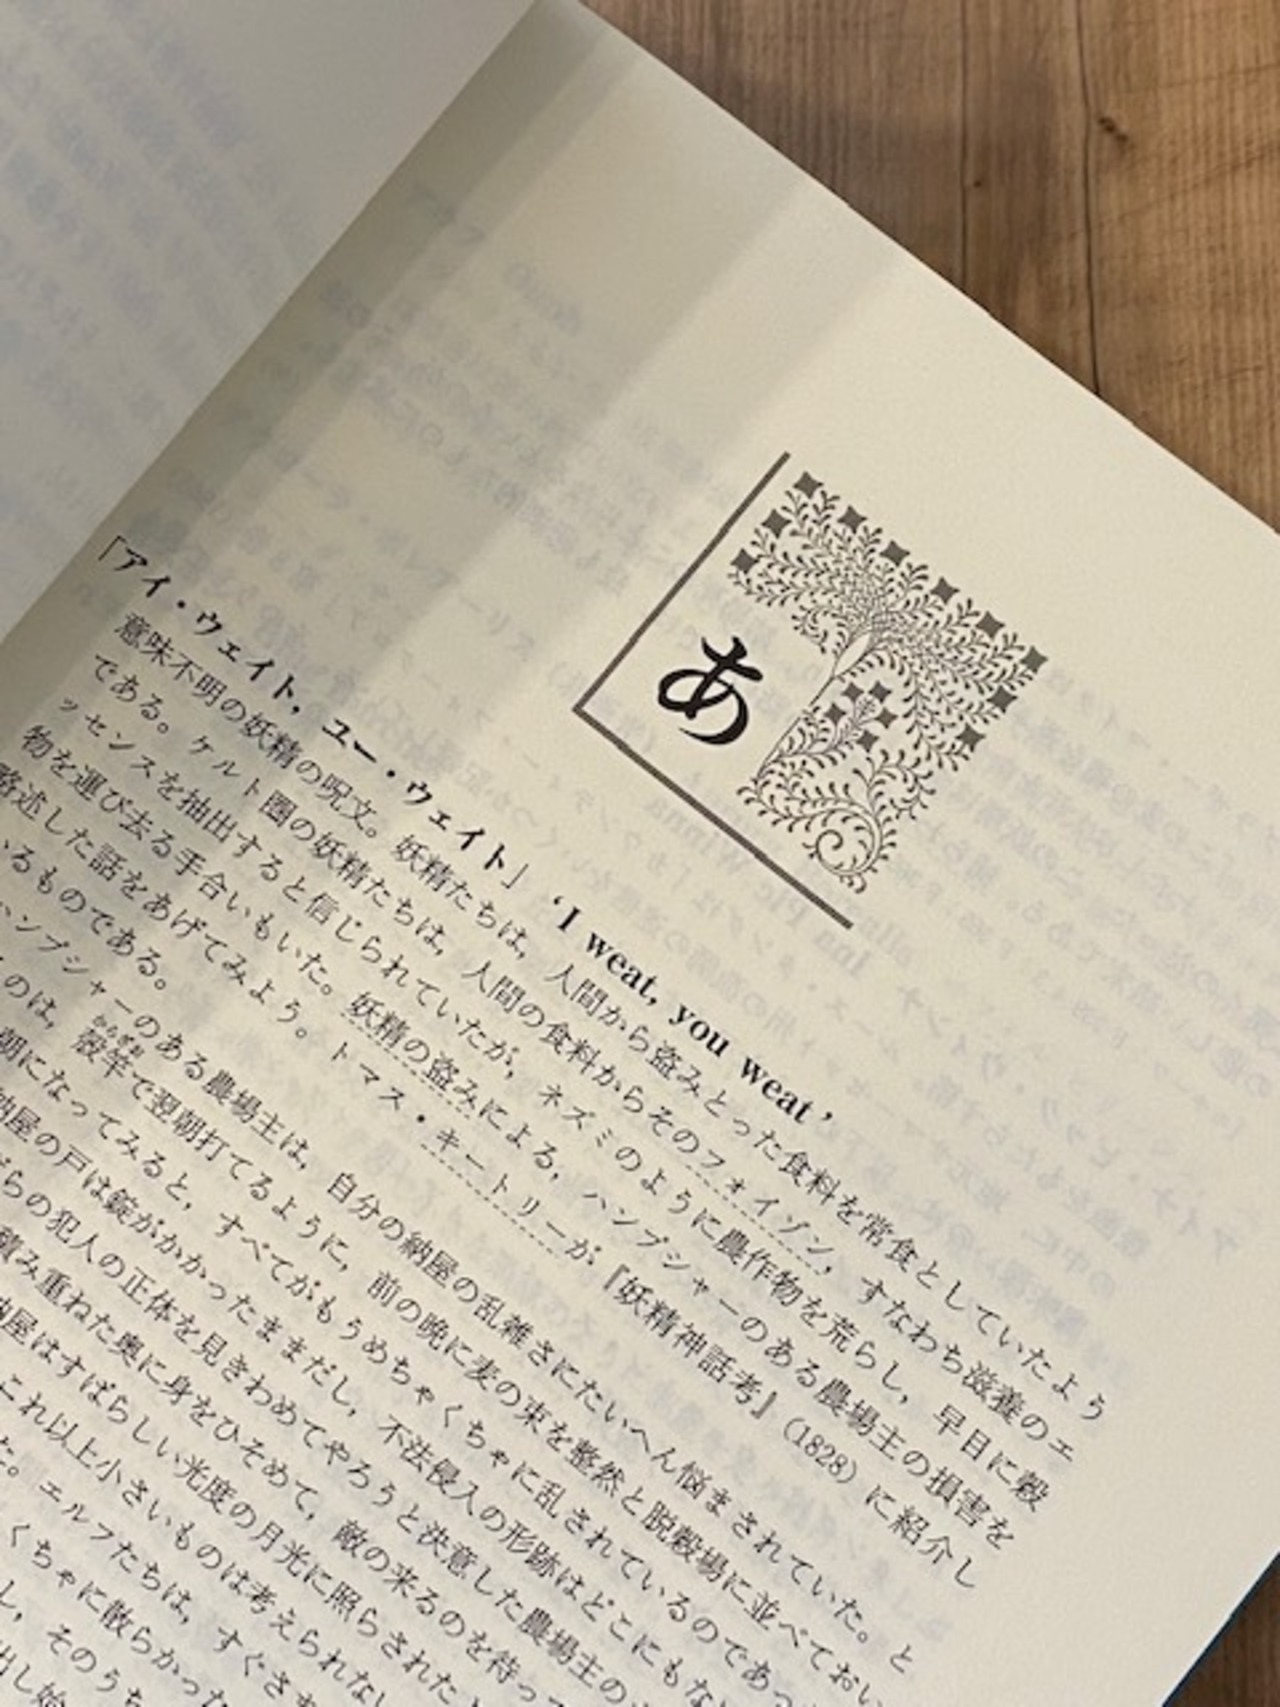 あ
「アイ・ウェイト，ユー・ウェイト」 ‘I weat, you weat’
意味不明の妖精の呪文。妖精たちは，人間から盗みとった食料を常食としていたよう
である。ケルト圏の妖精たちは，人間の食料からそのフォイゾン，すなわち滋養のエ
ッセンスを抽出すると信じられていたが，ネズミのように農作物を荒らし，早目に穀
物を運び去る手合いもいた。妖精の盗みによる，ハンプシャーのある農場主の損害を
略述した話をあげてみよう。トマス・キートリーが『妖精神話考』（1828）に紹介し
いるものである。
ハンプシャーのある農場主は，自分の納屋の乱雑さにたいへん悩まされていた。と
のは，殻竿からざおで翌朝打てるように，前の晩に麦の束を整然と脱穀場に並べておい
朝になってみると，すべてがもうめちゃくちゃに乱されているのであっ
納屋の戸は錠がかかったままだし，不法侵入の形跡はどこにもな
らの犯人の正体を見きわめてやろうと決意した農場主の
積み重ねた奥に身をひそめて，敵の来るのを待っ
納屋はすばらしい光度の月光に照らされた
これ以上小さいものは考えられない
た。エルフたちは，すぐさま
くちゃに散らかった
し，そのうち
出し始